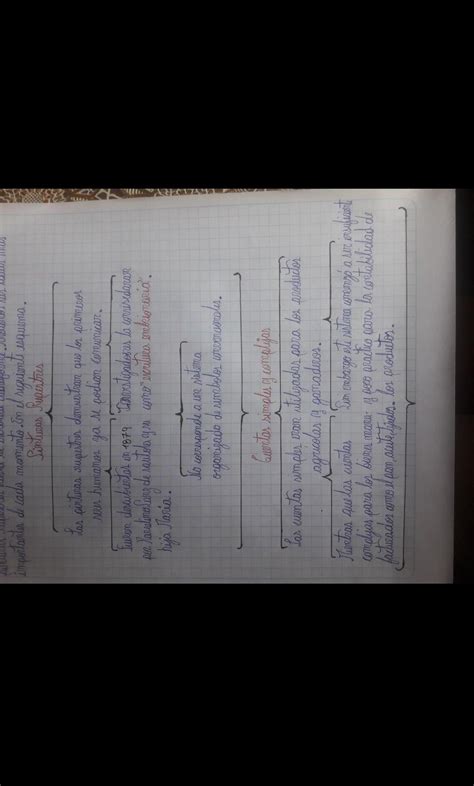 importantes de cada momento en el siguiente esquema.
Pinturas Rupestres
Las pinturas rupestres demuestran que los primeros
seres humanos ya se podían comunicar.
Fueron descubiertas en 1879
por Marcelino Sanz de Sautuola y su
hija María.
Investigadores la consideraron
como "escritura embrionaria".
No corresponde a un sistema
organizado de símbolos convencionales.
Cuentas simples y complejas
Las cuentas simples eran utilizadas para los productos
agrícolas y ganaderos.
Mientras que las cuentas
complejas para los bienes manu-
facturados como el pan, aceite,
Sin embargo este sistema comenzó a ser insuficiente
y poco practico para la contabilidad de
los productos.